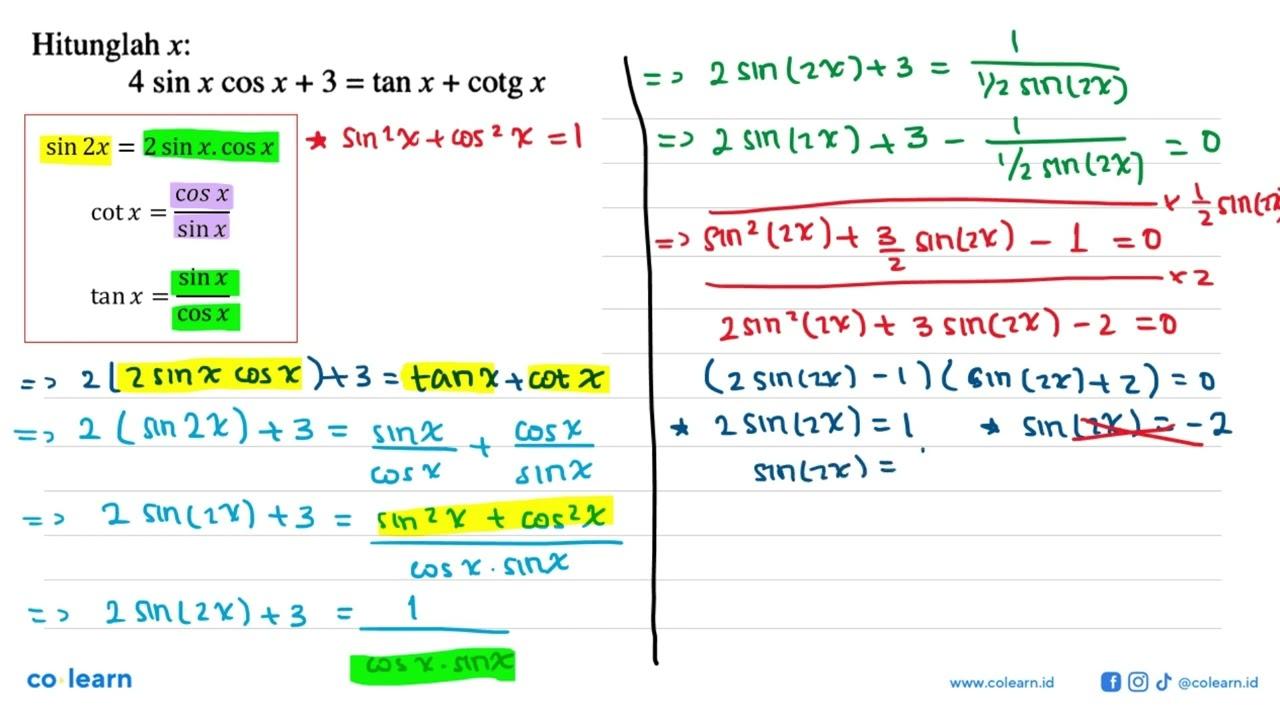 Hitunglah x:
4 sin x cos x + 3 = tan x + cotg x
sin 2x = 2 sin x. cos x
cot x = cos x / sin x
tan x = sin x / cos x
* sin²x + cos²x = 1
=> 2(2 sin x cos x) + 3 = tan x + cot x
=> 2(sin 2x) + 3 = sin x / cos x + cos x / sin x
=> 2 sin(2x) + 3 = sin²x + cos²x / cos x . sin x
=> 2 sin(2x) + 3 = 1 / cos x . sin x
=> 2 sin(2x) + 3 = 1 / 1/2 sin(2x)
=> 2 sin(2x) + 3 - 1 / 1/2 sin(2x) = 0
x 1/2 sin(2x)
=> sin²(2x) + 3/2 sin(2x) - 1 = 0
x 2
2 sin²(2x) + 3 sin(2x) - 2 = 0
(2 sin(2x) - 1)(sin(2x) + 2) = 0
* 2 sin(2x) = 1 * sin(2x) = -2
sin(2x) =
co learn
www.colearn.id @colearn.id